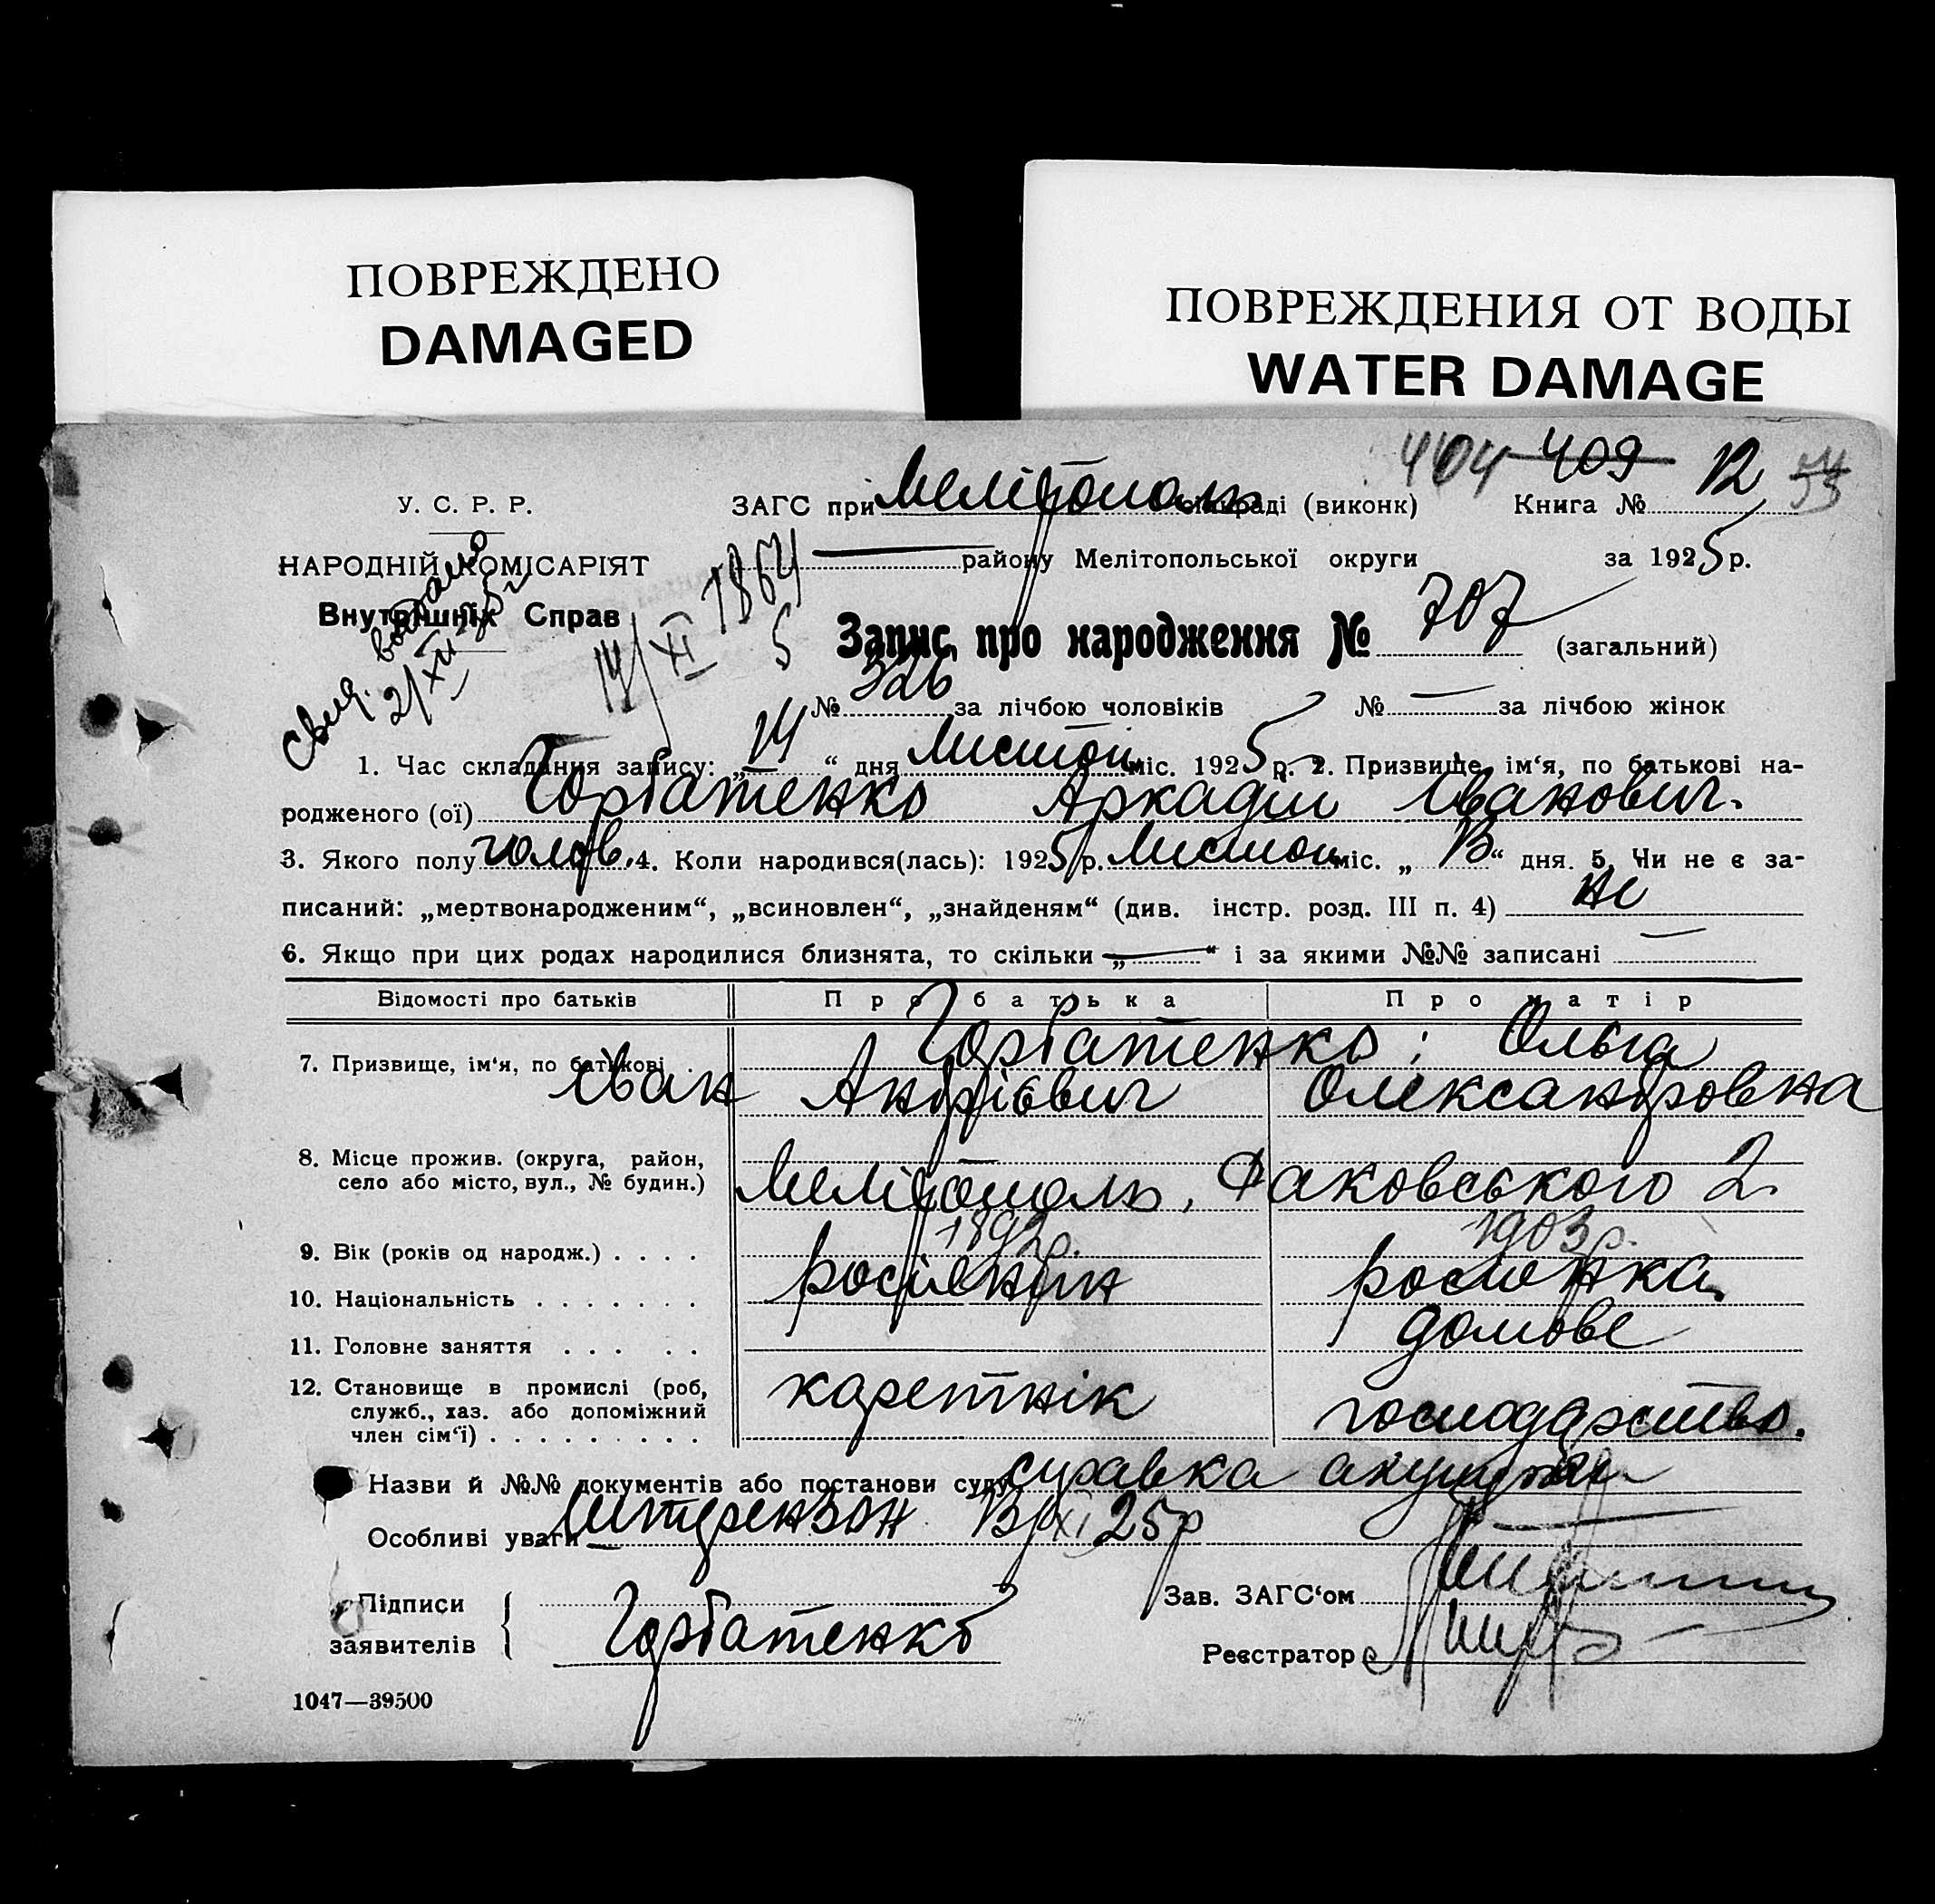 ПОВРЕЖДЕНО
DAMAGED
ПОВРЕЖДЕНИЯ ОТ ВОДЫ
WATER DAMAGE
404 409 12
У. С. Р. Р.
ЗАГС при Мелітополь міськраді (виконк) Книга №
НАРОДНІЙ КОМІСАРІЯТ
району Мелітопольської округи за 1925 р.
Внутрішніх Справ
свид. выдано
2/XII 25 г
14/XI 1864
5
Запис про народження № 707 (загальний)
№ 326 за лічбою чоловіків № — за лічбою жінок
1. Час складання запису: „14“ дня Листоп міс. 1925 р. 2. Призвище, ім‘я, по батькові на-
родженого (ої) Горбатенко Аркадій Іванович.
3. Якого полу чолов. 4. Коли народився(лась): 1925 р. Листоп міс. „ “ дня. 5. Чи не є за-
писаний: „мертвонародженим“, „всиновлен“, „знайденям“ (див. інстр. розд. III п. 4) не
6. Якщо при цих родах народилися близнята, то скільки „—“ і за якими №№ записані —
Відомості про батьків Про батька Про матір
7. Призвище, ім‘я, по батькові . Горбатенко: Ольга
Іван Андрієвич Олександровна
8. Місце прожив. (округа, район,
село або місто, вул., № будин.) Мелітополь, Раковського 2
9. Вік (років од народж.) . . . . 1892 р. 1903 р.
10. Національність . . . . . . . росіянин росіянка
11. Головне заняття . . . . . домове
12. Становище в промислі (роб,
служб., хаз. або допоміжний
член сім‘ї) . . . . . . . . . каретнік господарство.
Назви й №№ документів або постанови суду справка акушерки
Особливі уваги XI 25 р
Підписи
заявителів Горбатенко
Зав. ЗАГС‘ом
Реєстратор
1047—39500